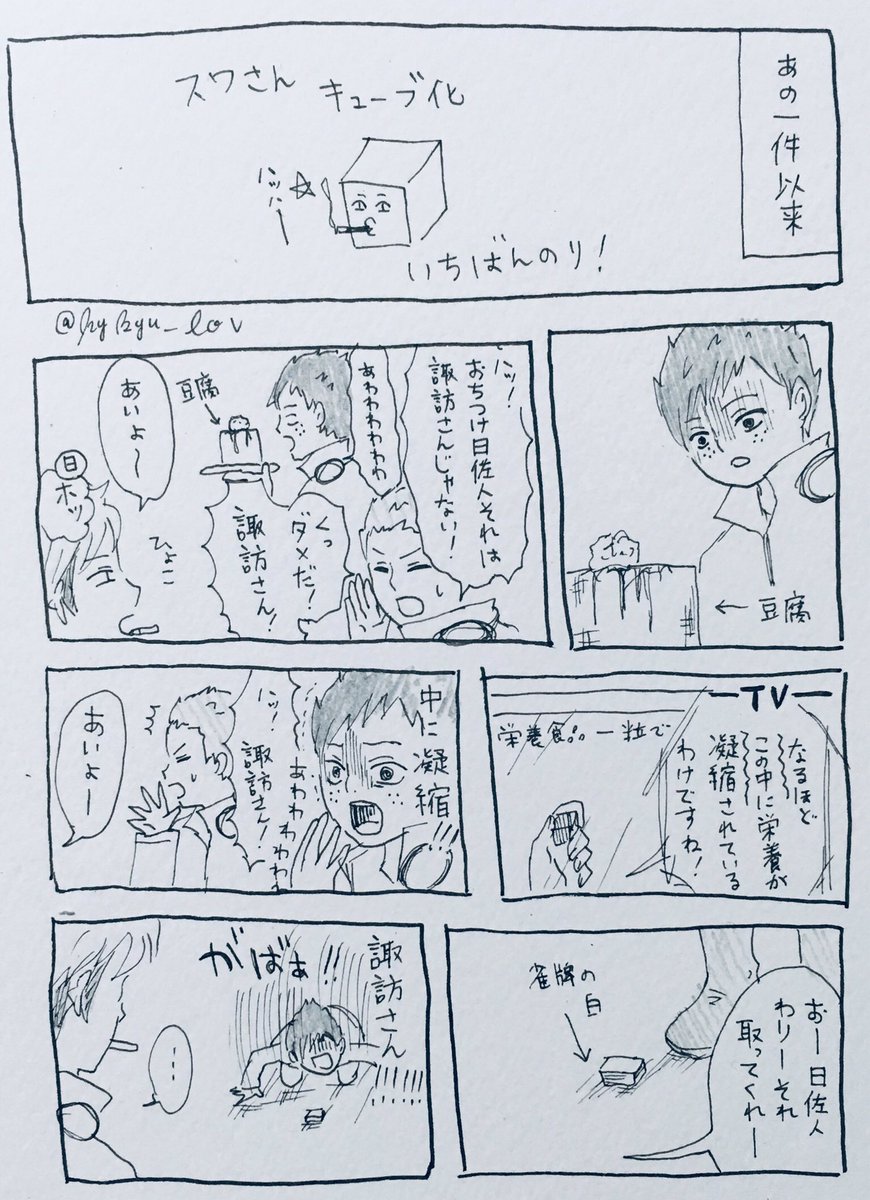 あの一件以来
スワさん
キューブ化
ハッハー
いちばんのり!
豆腐
ハッ!
おちつけ日佐人それは
諏訪さんじゃない!
あわわわわわわ
豆腐
くっ
ダメだ!
諏訪さん!
あいよ〜
日
ホッ
ひょこ
ーTVー
なるほど
この中に栄養が
凝縮されている
わけですね!
栄養食品一粒で
中に凝縮
!!
あわわわわわ
ハッ!
諏訪さん!
あいよー
おー日佐人
わりーそれ
取ってくれー
雀牌の
白
諏訪さん
!!!!!!
がばぁ!!
…